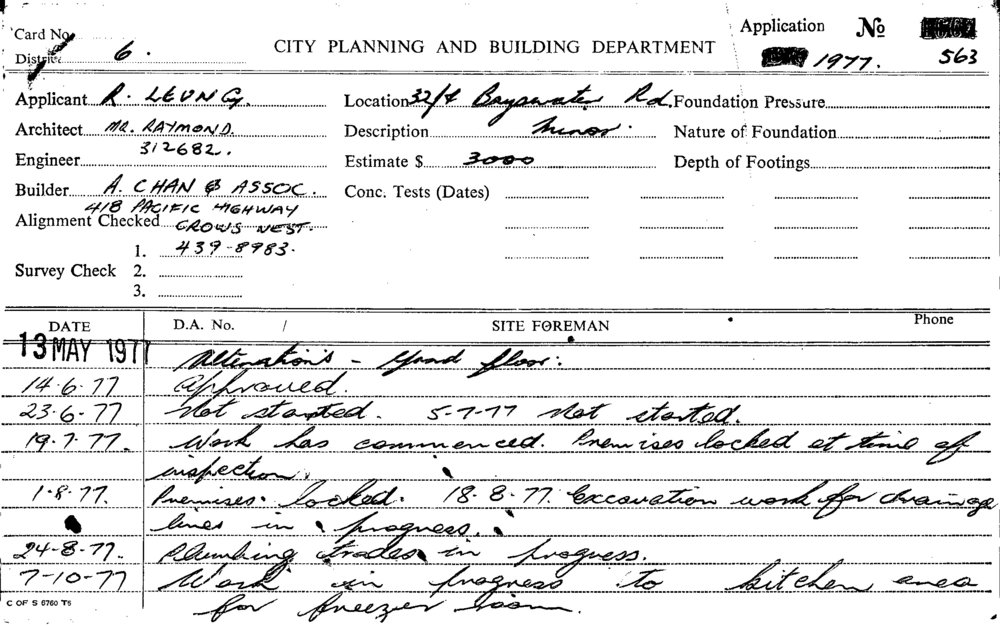 Card No.
Application No
District 6.
CITY PLANNING AND BUILDING DEPARTMENT
1977. 563
Applicant R. LEUNG. Location 32/4 Bayswater Rd. Foundation Pressure
Architect MR. RAYMOND. Description Minor. Nature of Foundation
312682.
Engineer Estimate $ 3000 Depth of Footings
Builder A. CHAN & ASSOC. Conc. Tests (Dates)
418 PACIFIC HIGHWAY
Alignment Checked CROWS NEST.
1. 439-8983.
Survey Check 2.
3.
DATE D.A. No. / SITE FOREMAN Phone
13 MAY 1977 Alterations - Grnd floor.
14.6.77 Approved.
23.6.77 Not started. 5-7-77 Not started.
19.7.77. Work has commenced. Premises locked at time of
inspection.
1.8.77. Premises locked. 18.8.77. Excavation work for drainage
lines in progress.
24-8-77. Plumbing trades in progress.
7-10-77 Work in progress to kitchen area
for freezer room.
C OF S 6760 T5